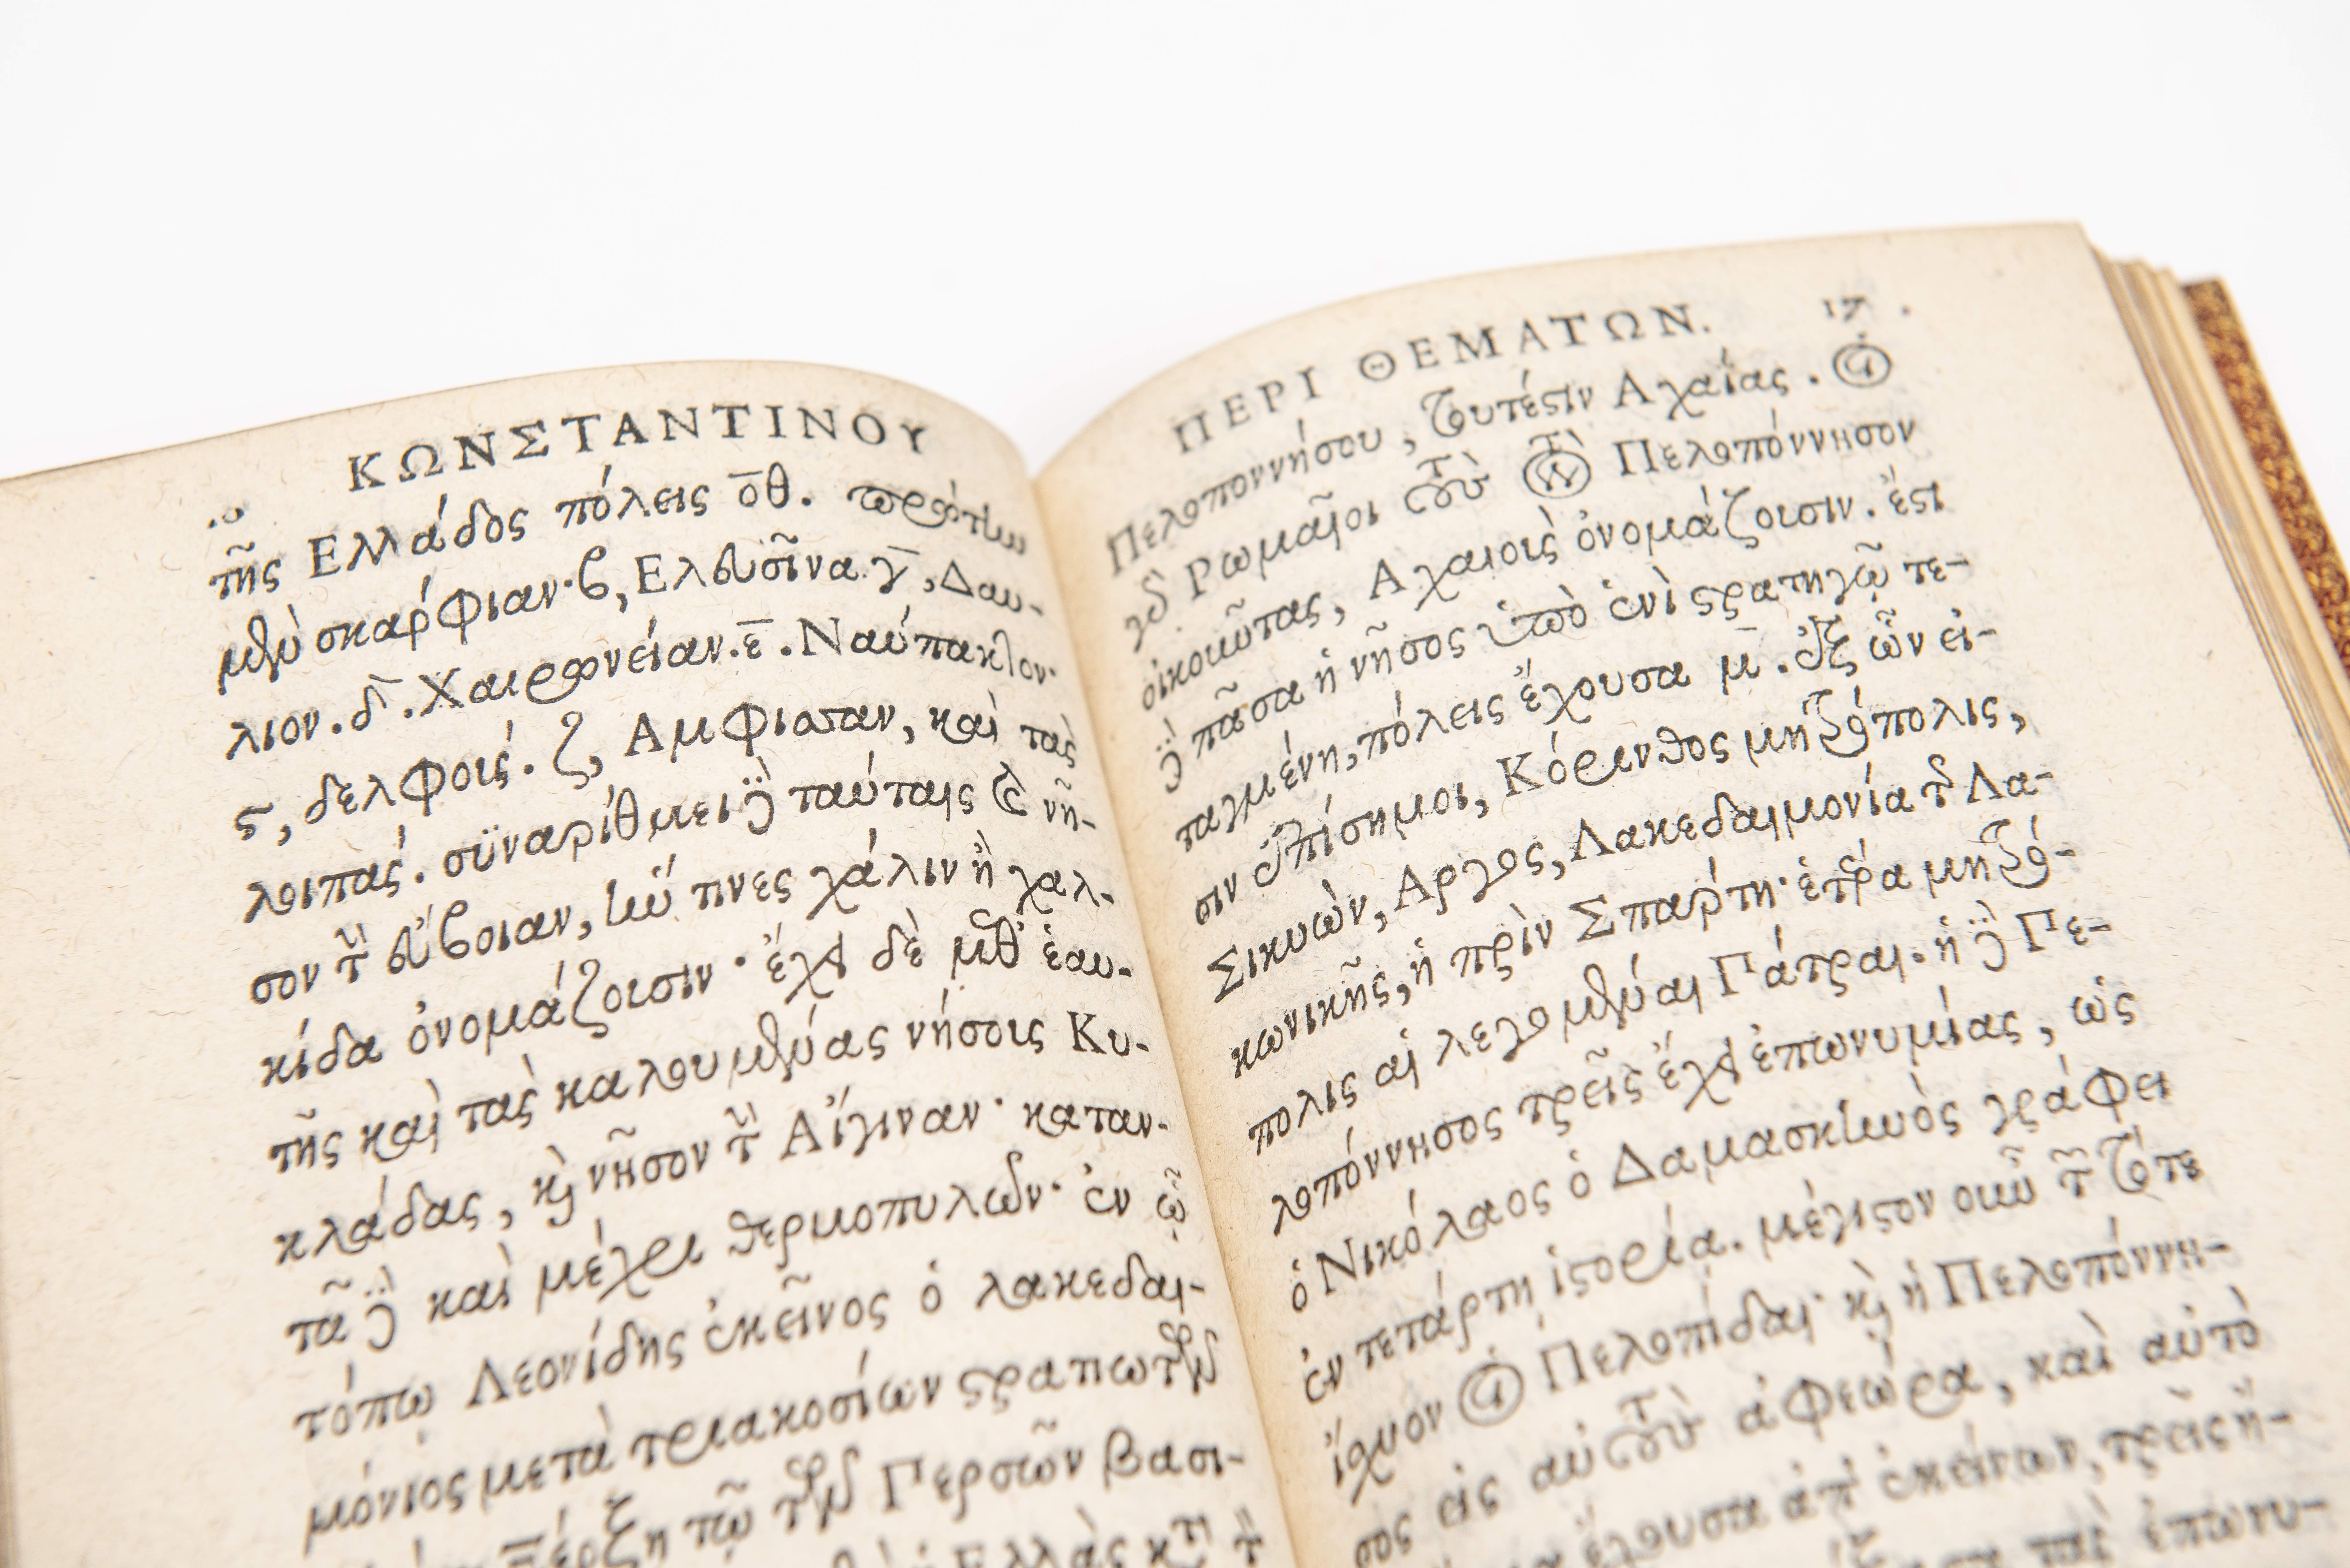 ΚΩΝΣΤΑΝΤΙΝΟΥ
τῆς Ελλάδος πόλεις ο̅θ. πρώτην
μὲν σκάρφιαν· β, Ελευσῖνα. γ̅, Δαυ-
λιον. δ̅. Χαιρωνείαν. ε̅. Ναύπακτον.
ϛ, δελφούς. ζ, Αμφισσαν, καὶ τὰς
λοιπάς. συναρίθμει δὲ ταύταις καὶ νῆ-
σον τὴν εὔβοιαν, ἣν τινες χάλιν ἢ χαλ-
κίδα ὀνομάζουσιν· ἔχει δὲ μεθ' ἑαυ-
τῆς καὶ τὰς καλουμένας νήσους Κυ-
κλάδας, καὶ νῆσον τὴν Αἴγιναν· καταν-
τᾶ δὲ καὶ μέχρι θερμοπυλῶν· ἐν ᾧ
τόπῳ Λεονίδης ἐκεῖνος ὁ λακεδαι-
μόνιος μετὰ τριακοσίων στρατιωτῶν
Ξέρξη τῷ τῶν Περσῶν βασι-
Ελλὰς κατὰ τὴν
ΠΕΡΙ ΘΕΜΑΤΩΝ. 17.
Πελοποννήσου, τουτέστιν Αχαΐας. οἱ
γὰρ Ρωμαῖοι τοὺς τὴν Πελοπόννησον
οἰκοῦντας, Αχαιοὺς ὀνομάζουσιν. ἔστι
δὲ πᾶσα ἡ νῆσος ὑπὸ ἑνὶ στρατηγῷ τε-
ταγμένη, πόλεις ἔχουσα μ̅. ἐξ ὧν εἰ-
σιν ἐπίσημοι, Κόρινθος μητρόπολις,
Σικυὼν, Αργος, Λακεδαιμονία τῆς Λα-
κωνικῆς, ἡ πρὶν Σπάρτη· ἑτέρα μητρό-
πολις αἱ λεγομέναι Πάτραι. ἡ δὲ Πε-
λοπόννησος τρεῖς ἔχει ἐπωνυμίας, ὡς
ὁ Νικόλαος ὁ Δαμασκηνὸς γράφει
ἐν τετάρτη ἱστορία. μέγιστον οὖν τῶν τότε
ἴσχυον οἱ Πελοπίδαι· καὶ ἡ Πελοπόννη-
σος εἰς αὐτοὺς ἀφεώρα, καὶ αὐτὸ
ἔχουσα ἀπ' ἐκείνων, τρεῖς ἤ-
τὰς ἐπωνυ-